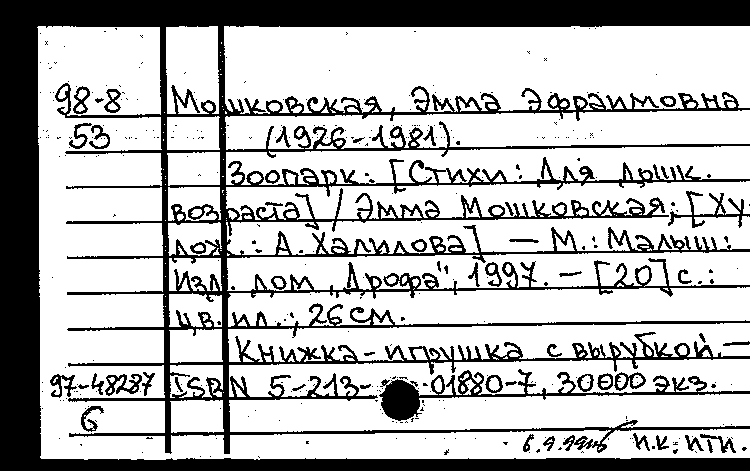 98-8 Мошковская, Эмма Эфраимовна
53 (1926-1981).
Зоопарк: [Стихи: Для дошк.
возраста] / Эмма Мошковская; [Ху-
дож.: А. Халилова] — М.: Малыш:
Изд. дом „Дрофа", 1997. — [20] с.:
цв. ил.; 26 см.
Книжка-игрушка с вырубкой. —
97-48287 ISBN 5-213-01880-7, 30000 экз.
6
6.4.99 И.К; ИТИ.